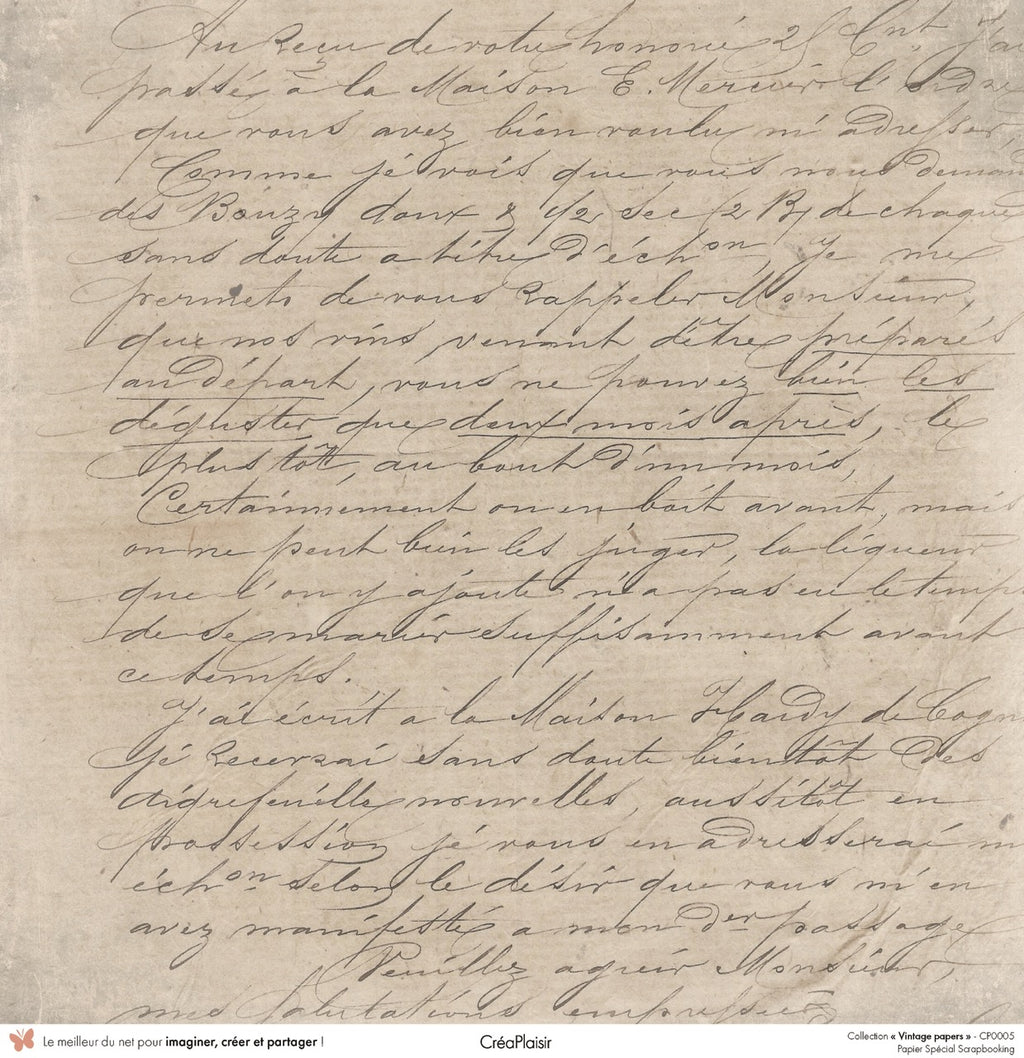 Au Reçu de votre honorée 25 Cnt j'ai
passé, à la Maison E. Mercier l'ordre
que vous avez bien voulu m'adresser,
Comme je vois que vous nous deman
des Bouzy doux & 1/2 sec 12 B/ de chaque
sans doute a titre d'échon, Je me
permets de vous Rappeler Monsieur,
que nos vins venant d'être préparés
au départ, vous ne pouvez bien les
déguster que deux mois après, le
plus tôt, au bout d'un mois,
Certainnement on en boit avant, mais
on ne peut bien les juger, la liqueur
que l'on y ajoute n'a pas eu le temps
de se marier suffisamment avant
ce temps.
J'ai écrit a la Maison Hardy de Cogn
je recevrai sans doute bientôt des
nouvelles, aussitôt en
possession je vous en adresserai
échon selon le désir que vous m'en
avez manifesté a mon der passage
Veuillez agréer Monsieur,
mes salutations empressées
Le meilleur du net pour imaginer, créer et partager !
CréaPlaisir
Collection « Vintage papers » - CP0005
Papier Spécial Scrapbooking